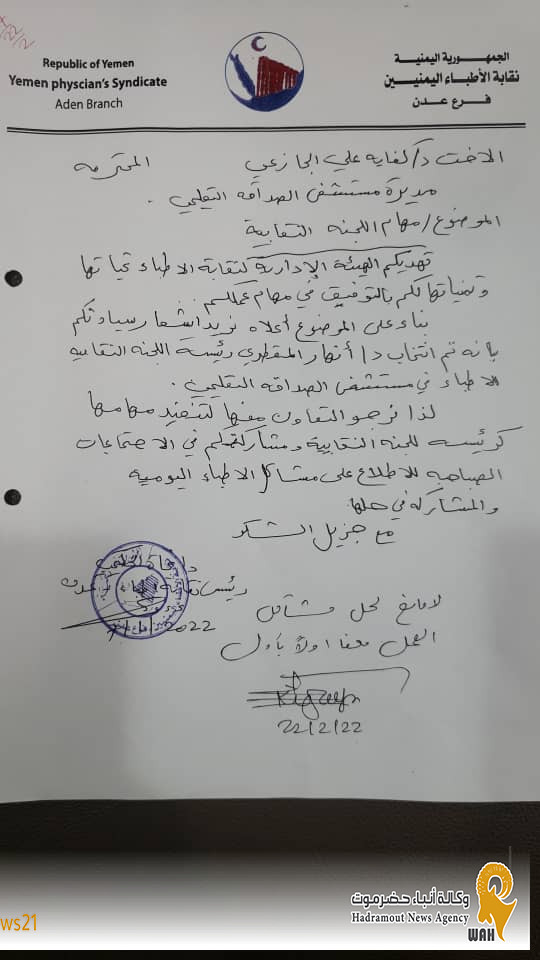 Republic of Yemen
Yemen physcian's Syndicate
Aden Branch
الجمهورية اليمنية
نقابة الأطباء اليمنيين
فرع عدن
الاخت د/ كفايه علي الجازعي المحترمه
مديرة مستشفى الصداقه التعليمي .
الموضوع / مهام اللجنه النقابية
تهديكم الهيئة الإدارية لنقابة الاطباء تحياتها
وتمنياتها لكم بالتوفيق في مهام عملكم
بناء على الموضوع أعلاه نريد اشعار سيادتكم
بانه تم انتخاب د/ أنهار المقطري رئيسة اللجنه النقابيه
الاطباء في مستشفى الصداقه التعليمي .
لذا نرجو التعاون معها لتنفيذ مهامها
كرئيسه للجنه النقابية ومشاركتكم في الاجتماعات
الصباحيه للاطلاع على مشاكل الاطباء اليوميه
والمشاركه في حلها
مع جزيل الشكر
رئيس نقابة عدن
2022
لا مانع لحل مشاكل
العمل معنا اولاً بأول
22/2/22
وكالة أنباء حضرموت
Hadramout News Agency
WAH
ws21